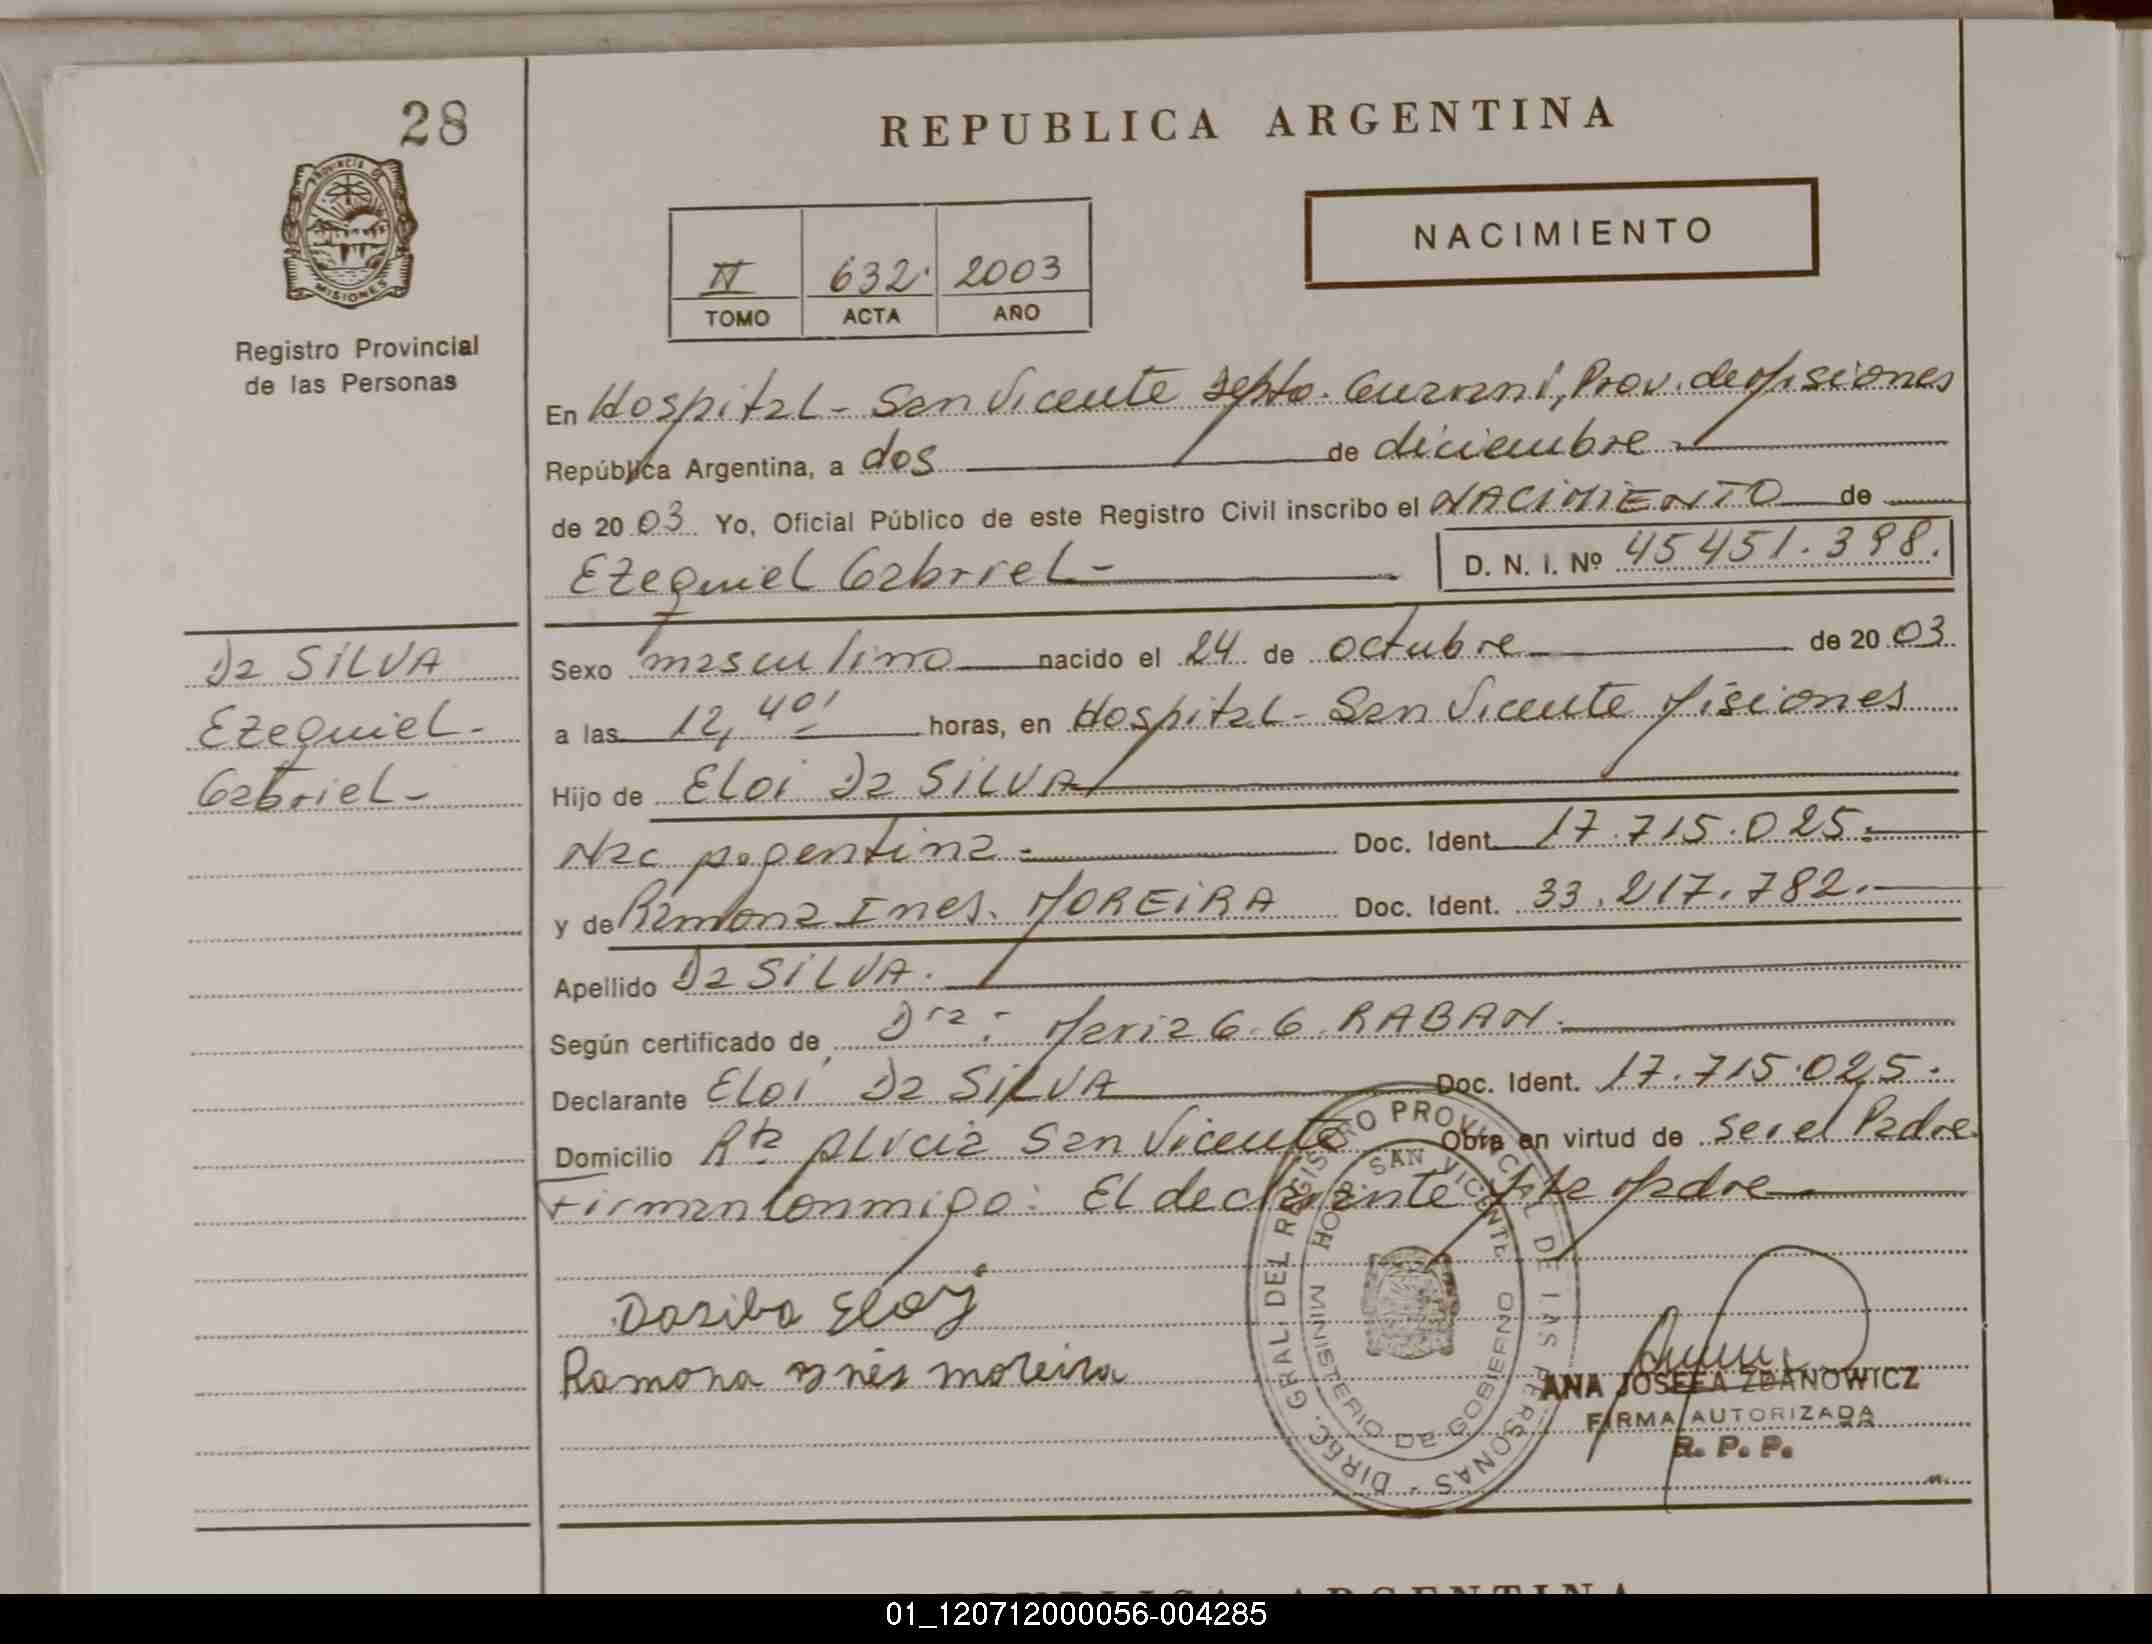 28
REPUBLICA ARGENTINA
PROVINCIA D
MISIONES
Registro Provincial
de las Personas
NACIMIENTO
II 632. 2003
TOMO ACTA AÑO
En Hospital - San Vicente Depto. Guarani, Prov. de Misiones
República Argentina, a dos de diciembre
de 2003. Yo, Oficial Público de este Registro Civil inscribo el NACIMIENTO de
Ezequiel Gabriel - D. N. I. Nº 45451.398.
Da SILVA
Ezequiel -
Gabriel -
Sexo masculino nacido el 24 de octubre de 2003.
a las 12,40' horas, en Hospital - San Vicente Misiones
Hijo de Eloi Da SILVA
Nac Argentina - Doc. Ident. 17.715.025.
y de Ramona Ines. MOREIRA Doc. Ident. 33.217.782.
Apellido Da SILVA.
Según certificado de Dra: Maria G. G. RABAN.
Declarante Eloi Da SILVA Doc. Ident. 17.715.025.
Domicilio San Vicente Obra en virtud de ser el Padre
Firman Conmigo: El declarante y la Madre
Dasilva Eloy
Ramona Ynés moreira
DIREC. GRAL. DEL REGISTRO PROVINCIAL DE LAS PERSONAS -
HOSP SAN VICENTE
MINISTERIO DE GOBIERNO
ANA JOSEFA ZDANOWICZ
FIRMA AUTORIZADA
R. P. P.
REPUBLICA ARGENTINA
01_120712000056-004285